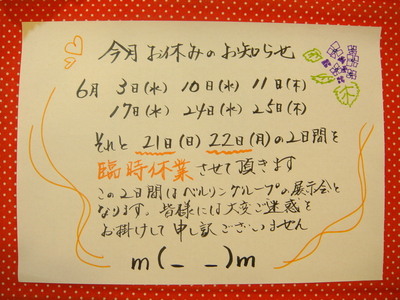 今月お休みのお知らせ
6月 3日(水) 10日(水) 11日(木)
17日(水) 24日(水) 25日(木)
それと 21日(日) 22日(月)の2日間を
臨時休業させて頂きます
この2日間はベルリングループの展示会と
なります。皆様には大変ご迷惑を
お掛けして申し訳ございません
m(_ _)m